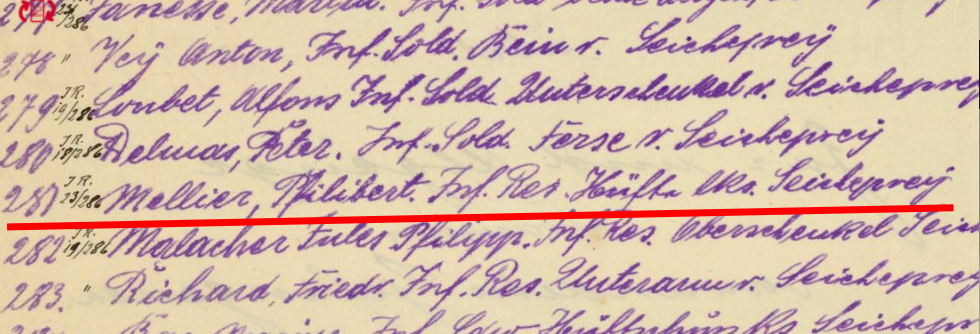 278 " Vey Anton, Inf. Sold. Bein r. Seicheprey
279 J.R. 19/286 Loubet, Alfons Inf. Sold. Unterschenkel r. Seicheprey
280 J.R. 18/286 Delmas, Peter. Inf. Sold. Ferse r. Seicheprey
281 J.R. 23/286 Mellier, Philibert. Inf. Res. Hüfte lks. Seicheprey
282 J.R. 19/286 Malacher Jules Philipp. Inf. Res. Oberschenkel Seich
283. " Richard, Friedr. Inf. Res. Unterarm r. Seicheprey